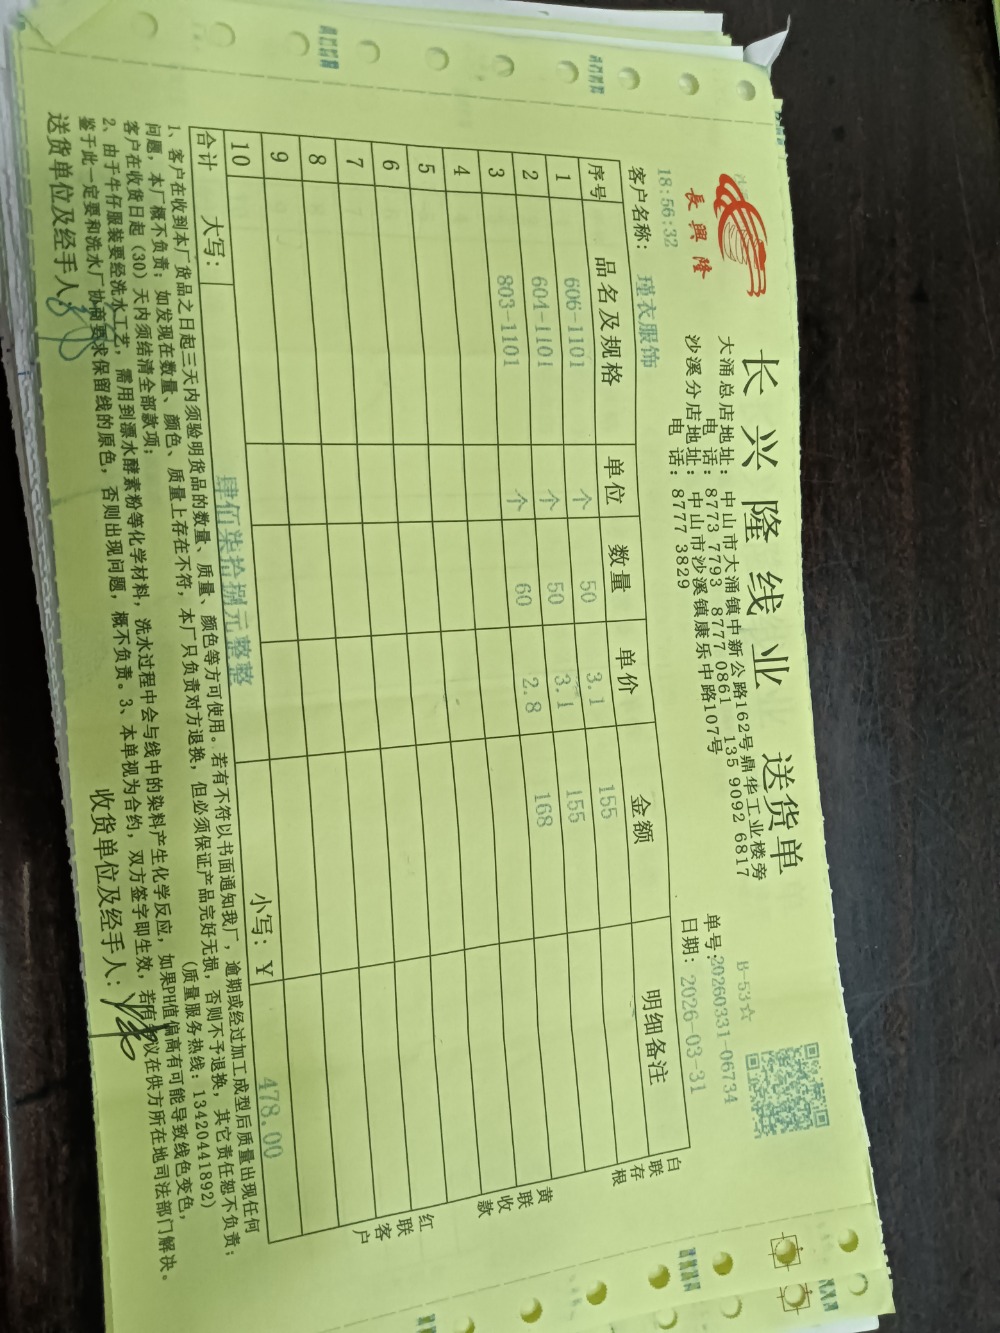 長興隆
长兴隆线业 送货单
大涌总店地址：中山市大涌镇中新公路162号鼎华工业楼旁
电 话：8773 7793 8777 0861 135 9092 6817
沙溪分店地址：中山市沙溪镇康乐中路107号
电 话：8777 3829
B-53☆
单号：20260331-06734
日期：2026-03-31
18:56:32
客户名称：瑾衣服饰
序号 品名及规格 单位 数量 单价 金额 明细备注
1 606-1101 个 50 3.1 155
2 604-1101 个 50 3.1 155
3 803-1101 个 60 2.8 168
4
5
6
7
8
9
10
合计 大写：肆佰柒拾捌元整整 小写：¥ 478.00
白联存根
黄联收款
红联客户
1、客户在收到本厂货品之日起三天内须验明货品的数量、质量、颜色等方可使用。若有不符以书面通知我厂，逾期或经过加工成型后质量出现任何
问题，本厂概不负责；如发现在数量、颜色、质量上存在不符，本厂只负责对方退换，但必须保证产品完好无损，否则不予退换，其它责任恕不负责；
客户在收货日起（30）天内须结清全部款项； （质量服务热线：13420441892）
2、由于牛仔服装要经洗水工艺，需用到漂水酵素粉等化学材料，洗水过程中会与线中的染料产生化学反应，如果PH值偏高有可能导致线色变色，
鉴于此一定要和洗水厂协商要求保留线的原色，否则出现问题，概不负责。3、本单视为合约，双方签字即生效，若有争议在供方所在地司法部门解决。
送货单位及经手人： 收货单位及经手人：